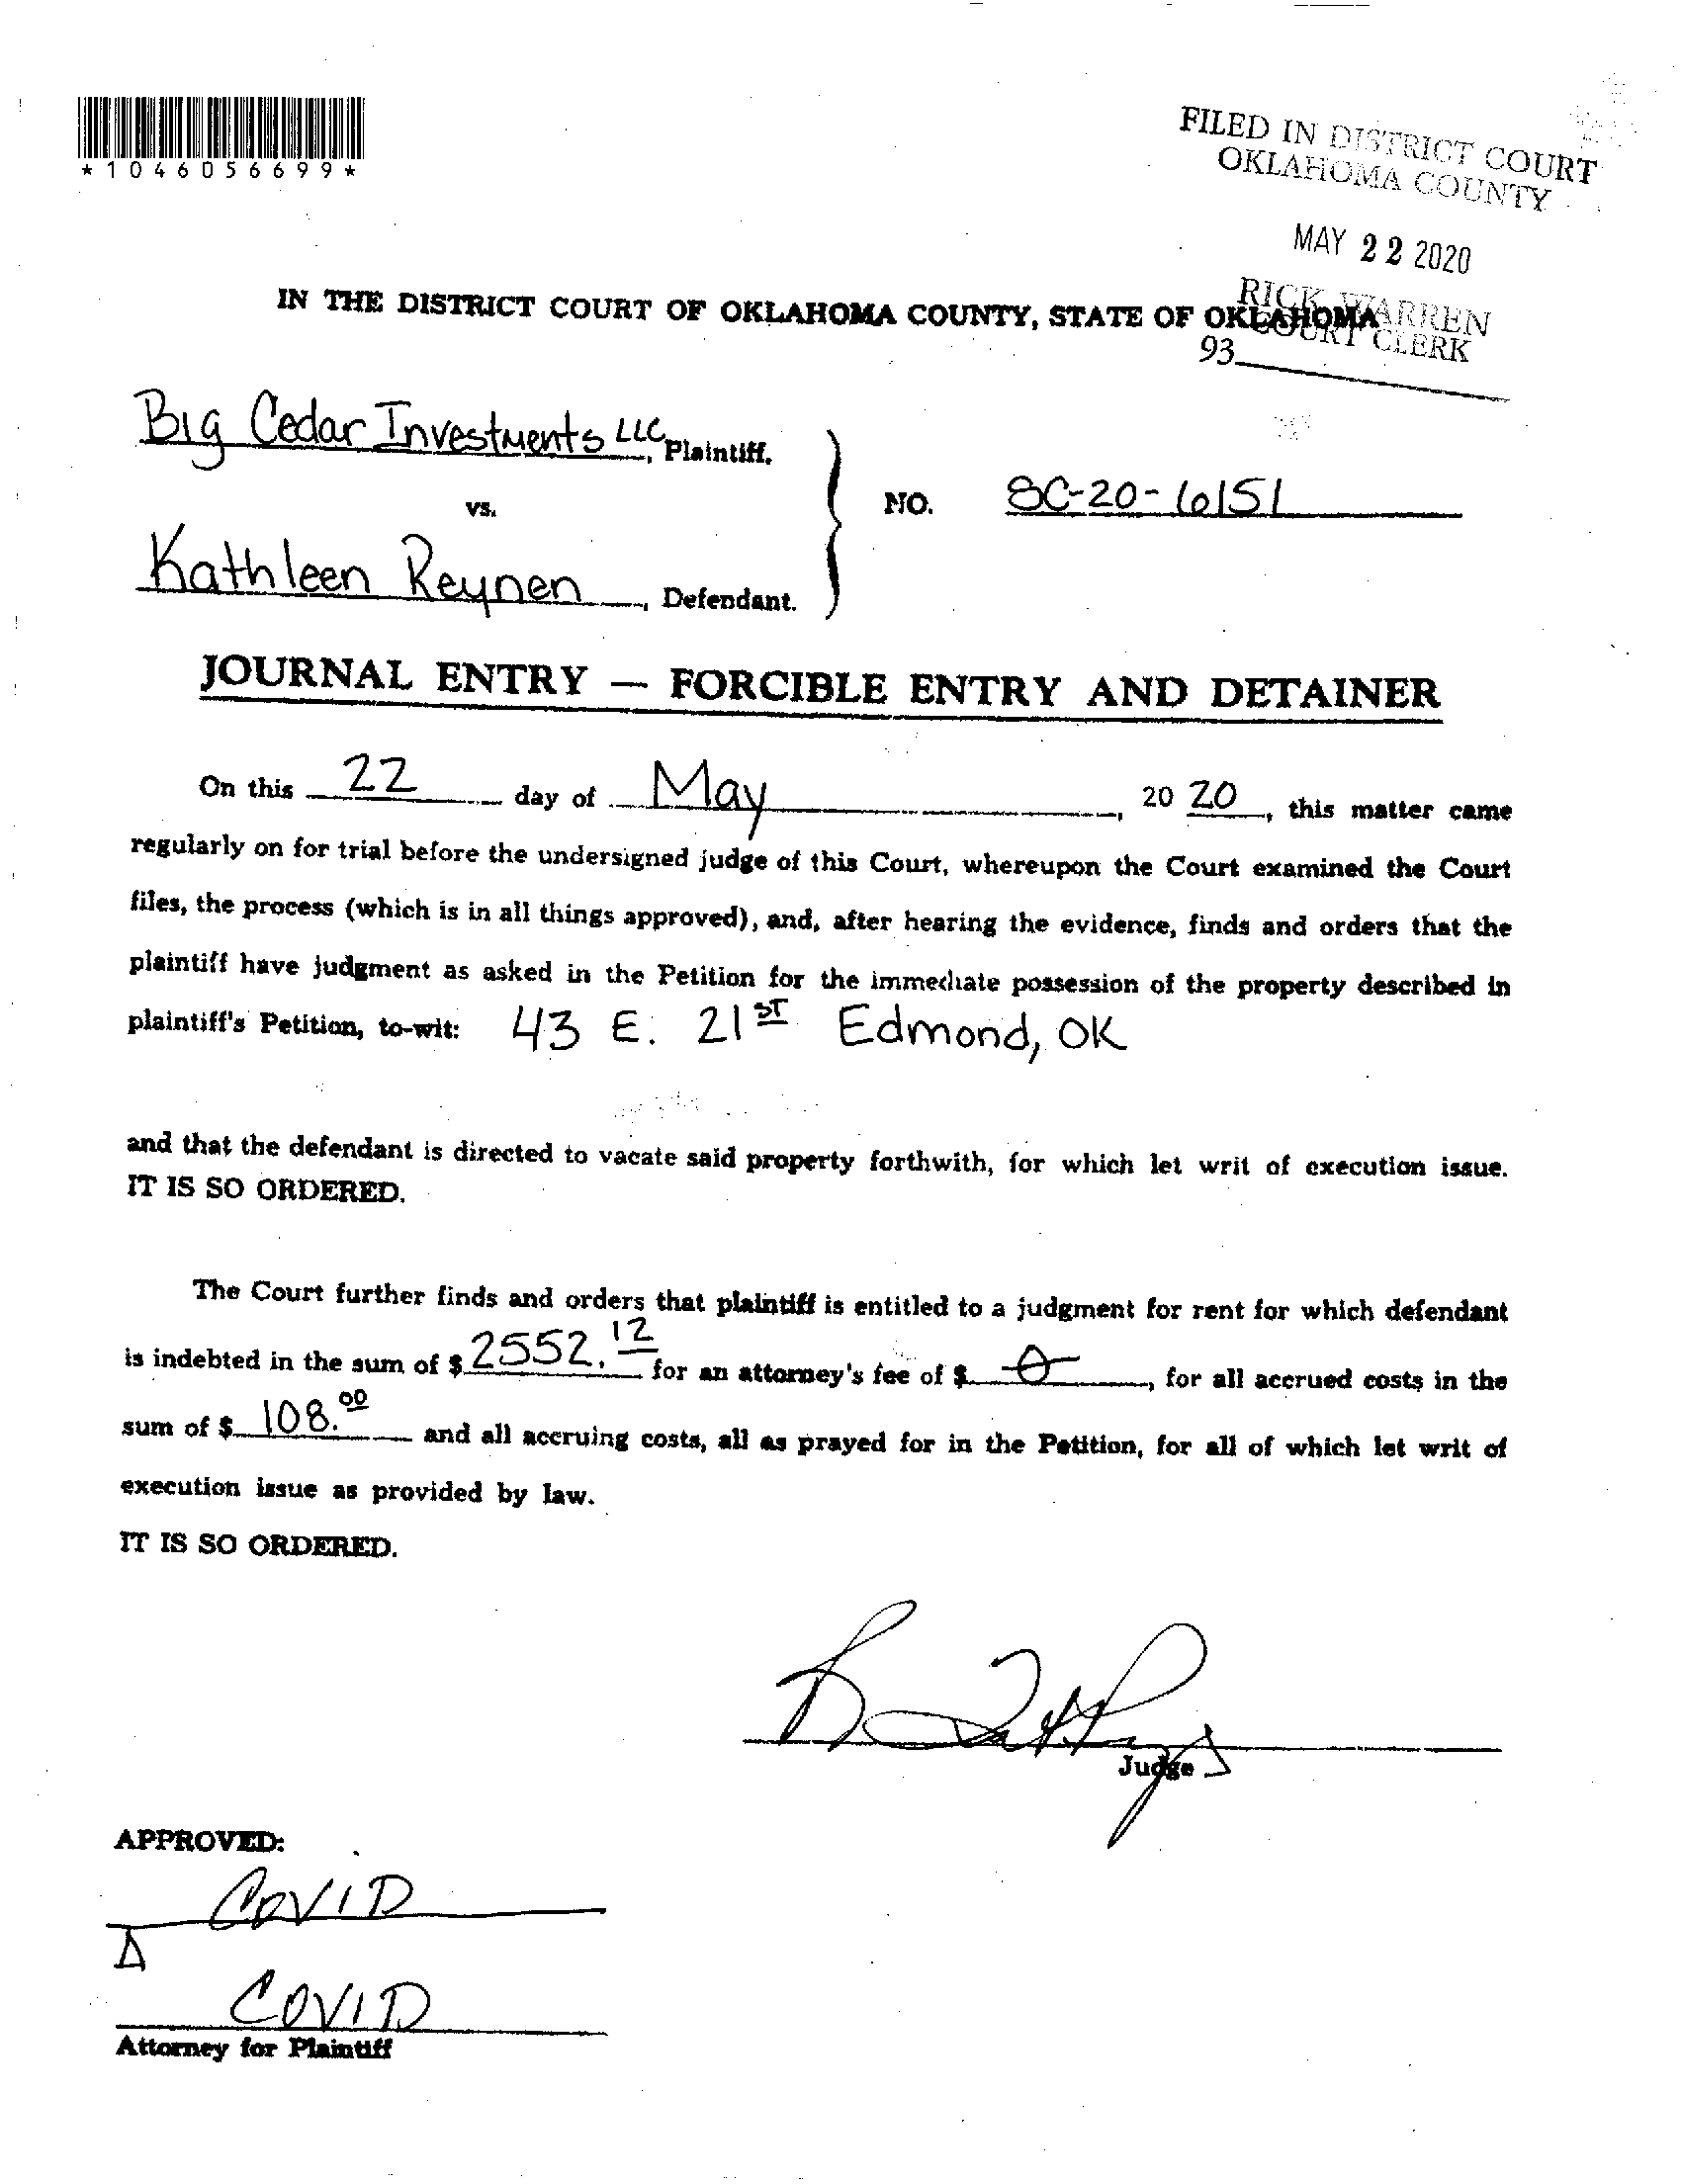 *1046056699*
FILED IN DISTRICT COURT
OKLAHOMA COUNTY
MAY 22 2020
RICK WARREN
COURT CLERK
93
IN THE DISTRICT COURT OF OKLAHOMA COUNTY, STATE OF OKLAHOMA
Big Cedar Investments LLC, Plaintiff,
vs.
NO. SC-20-6151
Kathleen Reynen, Defendant.
JOURNAL ENTRY — FORCIBLE ENTRY AND DETAINER
On this 22 day of May, 20 20, this matter came
regularly on for trial before the undersigned judge of this Court, whereupon the Court examined the Court
files, the process (which is in all things approved), and, after hearing the evidence, finds and orders that the
plaintiff have judgment as asked in the Petition for the immediate possession of the property described in
plaintiff's Petition, to-wit: 43 E. 21ST Edmond, OK
and that the defendant is directed to vacate said property forthwith, for which let writ of execution issue.
IT IS SO ORDERED.
The Court further finds and orders that plaintiff is entitled to a judgment for rent for which defendant
is indebted in the sum of $ 2552.12 for an attorney's fee of $ 0, for all accrued costs in the
sum of $ 108.00 and all accruing costs, all as prayed for in the Petition, for all of which let writ of
execution issue as provided by law.
IT IS SO ORDERED.
Judge
APPROVED:
COVID
Δ
COVID
Attorney for Plaintiff